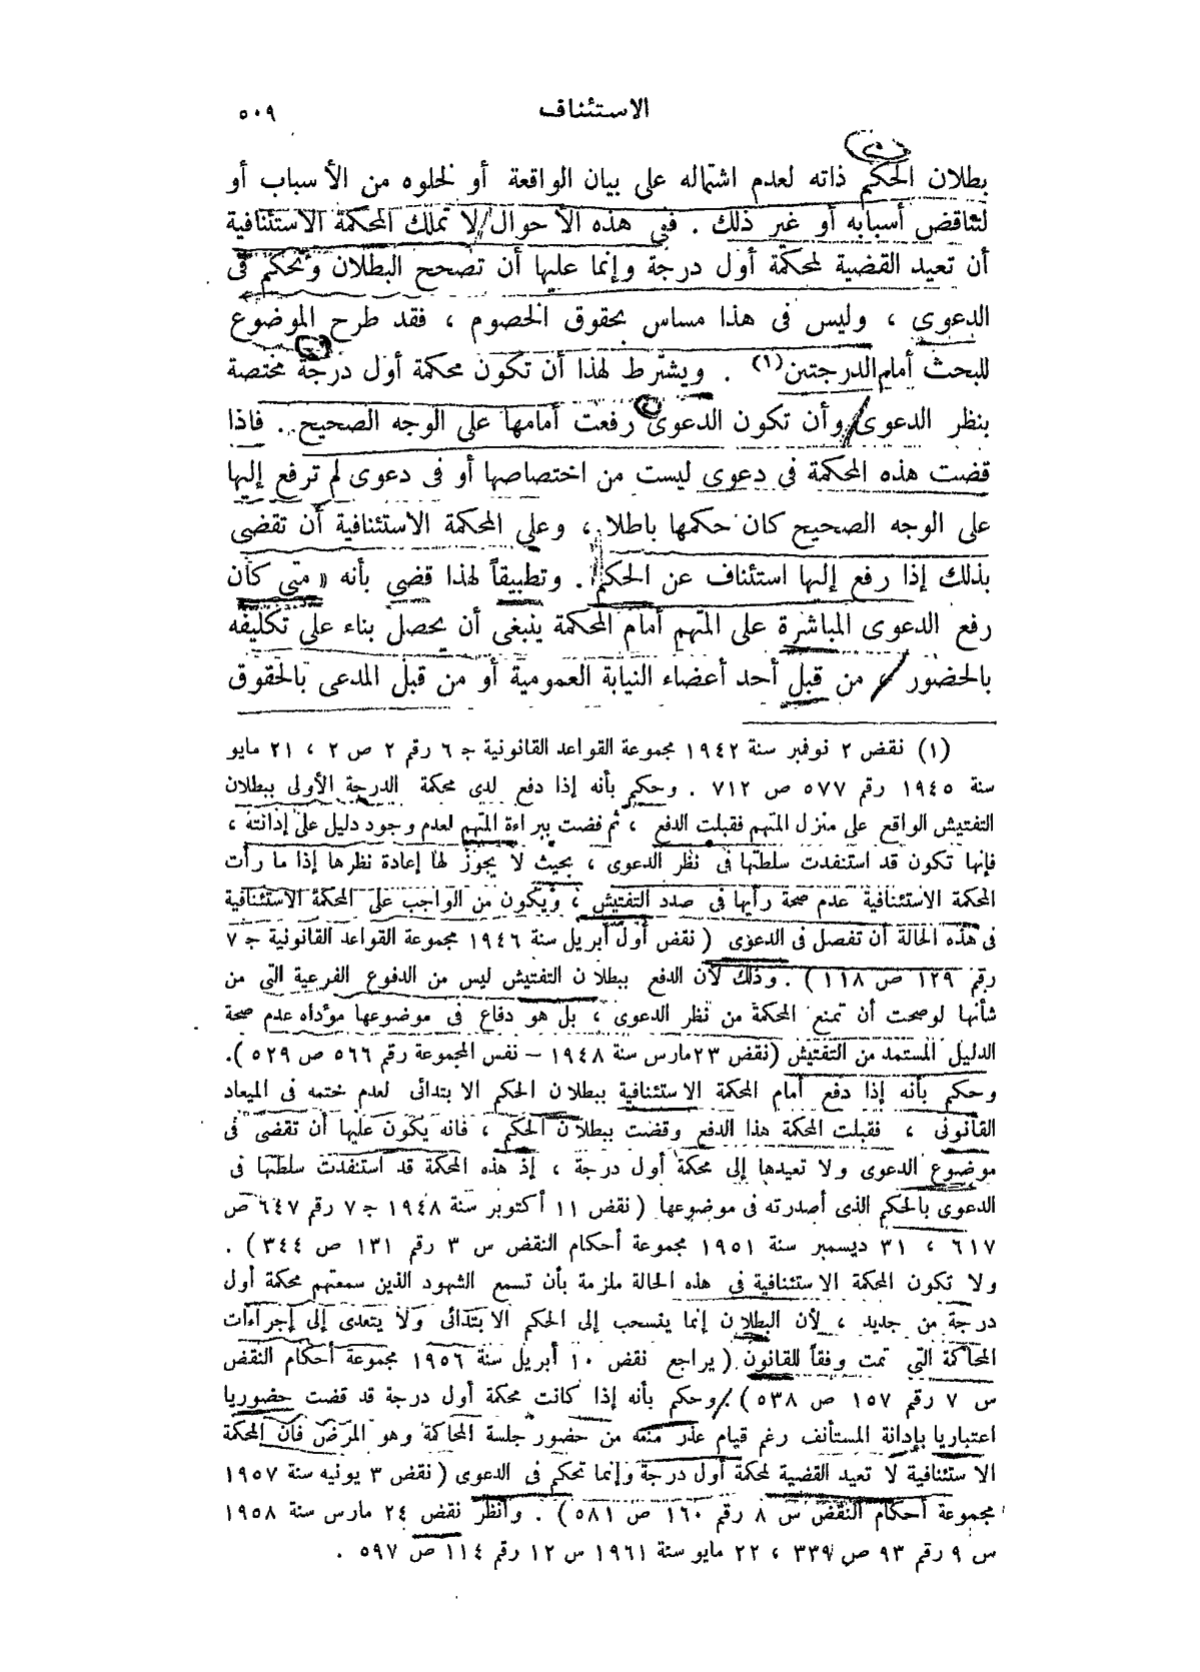 الاستئناف ٥٠٩
بطلان الحكم ذاته لعدم اشتماله على بيان الواقعة أو لخلوه من الأسباب أو
لتناقض أسبابه أو غير ذلك . ففى هذه الأحوال لا تملك المحكمة الاستئنافية
أن تعيد القضية لمحكمة أول درجة وإنما عليها أن تصحح البطلان وتحكم فى
الدعوى ، وليس فى هذا مساس بحقوق الخصوم ، فقد طرح الموضوع
للبحث أمام الدرجتين (١) . ويشترط لهذا أن تكون محكمة أول درجة مختصة
بنظر الدعوى وأن تكون الدعوى رفعت أمامها على الوجه الصحيح . فاذا
قضت هذه المحكمة فى دعوى ليست من اختصاصها أو فى دعوى لم ترفع إليها
على الوجه الصحيح كان حكمها باطلا ، وعلى المحكمة الاستئنافية أن تقضى
بذلك إذا رفع إليها استئناف عن الحكم . وتطبيقاً لهذا قضى بأنه « متى كان
رفع الدعوى المباشرة على المتهم أمام المحكمة ينبغى أن يحصل بناء على تكليفه
بالحضور من قبل أحد أعضاء النيابة العمومية أو من قبل المدعى بالحقوق
(١) نقض ٢ نوفمبر سنة ١٩٤٢ مجموعة القواعد القانونية جـ ٦ رقم ٢ ص ٢ ، ٢١ مايو
سنة ١٩٤٥ رقم ٥٧٧ ص ٧١٢ . وحكم بأنه إذا دفع لدى محكمة الدرجة الأولى ببطلان
التفتيش الواقع على منزل المتهم فقبلت الدفع ، ثم قضت ببراءة المتهم لعدم وجود دليل على إدانته ،
فإنها تكون قد استنفدت سلطتها فى نظر الدعوى ، بحيث لا يجوز لها إعادة نظرها إذا ما رأت
المحكمة الاستئنافية عدم صحة رأيها فى صدد التفتيش ، ويكون من الواجب على المحكمة الاستئنافية
فى هذه الحالة أن تفصل فى الدعوى ( نقض أول أبريل سنة ١٩٤٦ مجموعة القواعد القانونية جـ ٧
رقم ١٢٩ ص ١١٨ ) . وذلك لأن الدفع ببطلان التفتيش ليس من الدفوع الفرعية التى من
شأنها لو صحت أن تمنع المحكمة من نظر الدعوى ، بل هو دفاع فى موضوعها مؤداه عدم صحة
الدليل المستمد من التفتيش (نقض ٢٣ مارس سنة ١٩٤٨ – نفس المجموعة رقم ٥٦٦ ص ٥٢٩ ).
وحكم بأنه إذا دفع أمام المحكمة الاستئنافية ببطلان الحكم الابتدائى لعدم ختمه فى الميعاد
القانونى ، فقبلت المحكمة هذا الدفع وقضت ببطلان الحكم ، فانه يكون عليها أن تقضى فى
موضوع الدعوى ولا تعيدها إلى محكمة أول درجة ، إذ هذه المحكمة قد استنفدت سلطتها فى
الدعوى بالحكم الذى أصدرته فى موضوعها ( نقض ١١ أكتوبر سنة ١٩٤٨ جـ ٧ رقم ٦٤٧ ص
٦١٧ ، ٣١ ديسمبر سنة ١٩٥١ مجموعة أحكام النقض س ٣ رقم ١٣١ ص ٣٤٤ ) .
ولا تكون المحكمة الاستئنافية فى هذه الحالة ملزمة بأن تسمع الشهود الذين سمعتهم محكمة أول
درجة من جديد ، لأن البطلان إنما ينسحب إلى الحكم الابتدائى ولا يتعدى إلى إجراءات
المحاكمة التى تمت وفقاً للقانون ( يراجع نقض ١٠ أبريل سنة ١٩٥٦ مجموعة أحكام النقض
س ٧ رقم ١٥٧ ص ٥٣٨ ) . وحكم بأنه إذا كانت محكمة أول درجة قد قضت حضوريا
اعتباريا بإدانة المستأنف رغم قيام عذر منعه من حضور جلسة المحاكمة وهو المرض فان المحكمة
الاستئنافية لا تعيد القضية لمحكمة أول درجة وإنما تحكم فى الدعوى ( نقض ٣ يونيه سنة ١٩٥٧
مجموعة أحكام النقض س ٨ رقم ١٦٠ ص ٥٨١ ) . وانظر نقض ٢٤ مارس سنة ١٩٥٨
س ٩ رقم ٩٣ ص ٣٣٩ ، ٢٢ مايو سنة ١٩٦١ س ١٢ رقم ١١٤ ص ٥٩٧ .